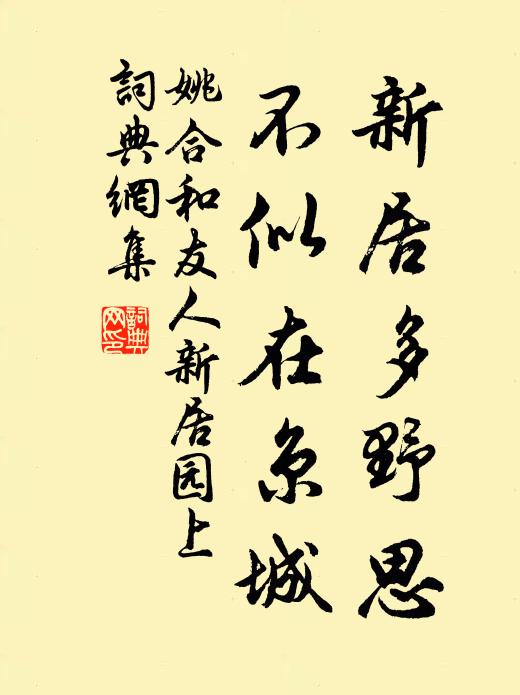 新居多野思
不似在京城
姚合和友人新居园上
詞典網集
詞典网印